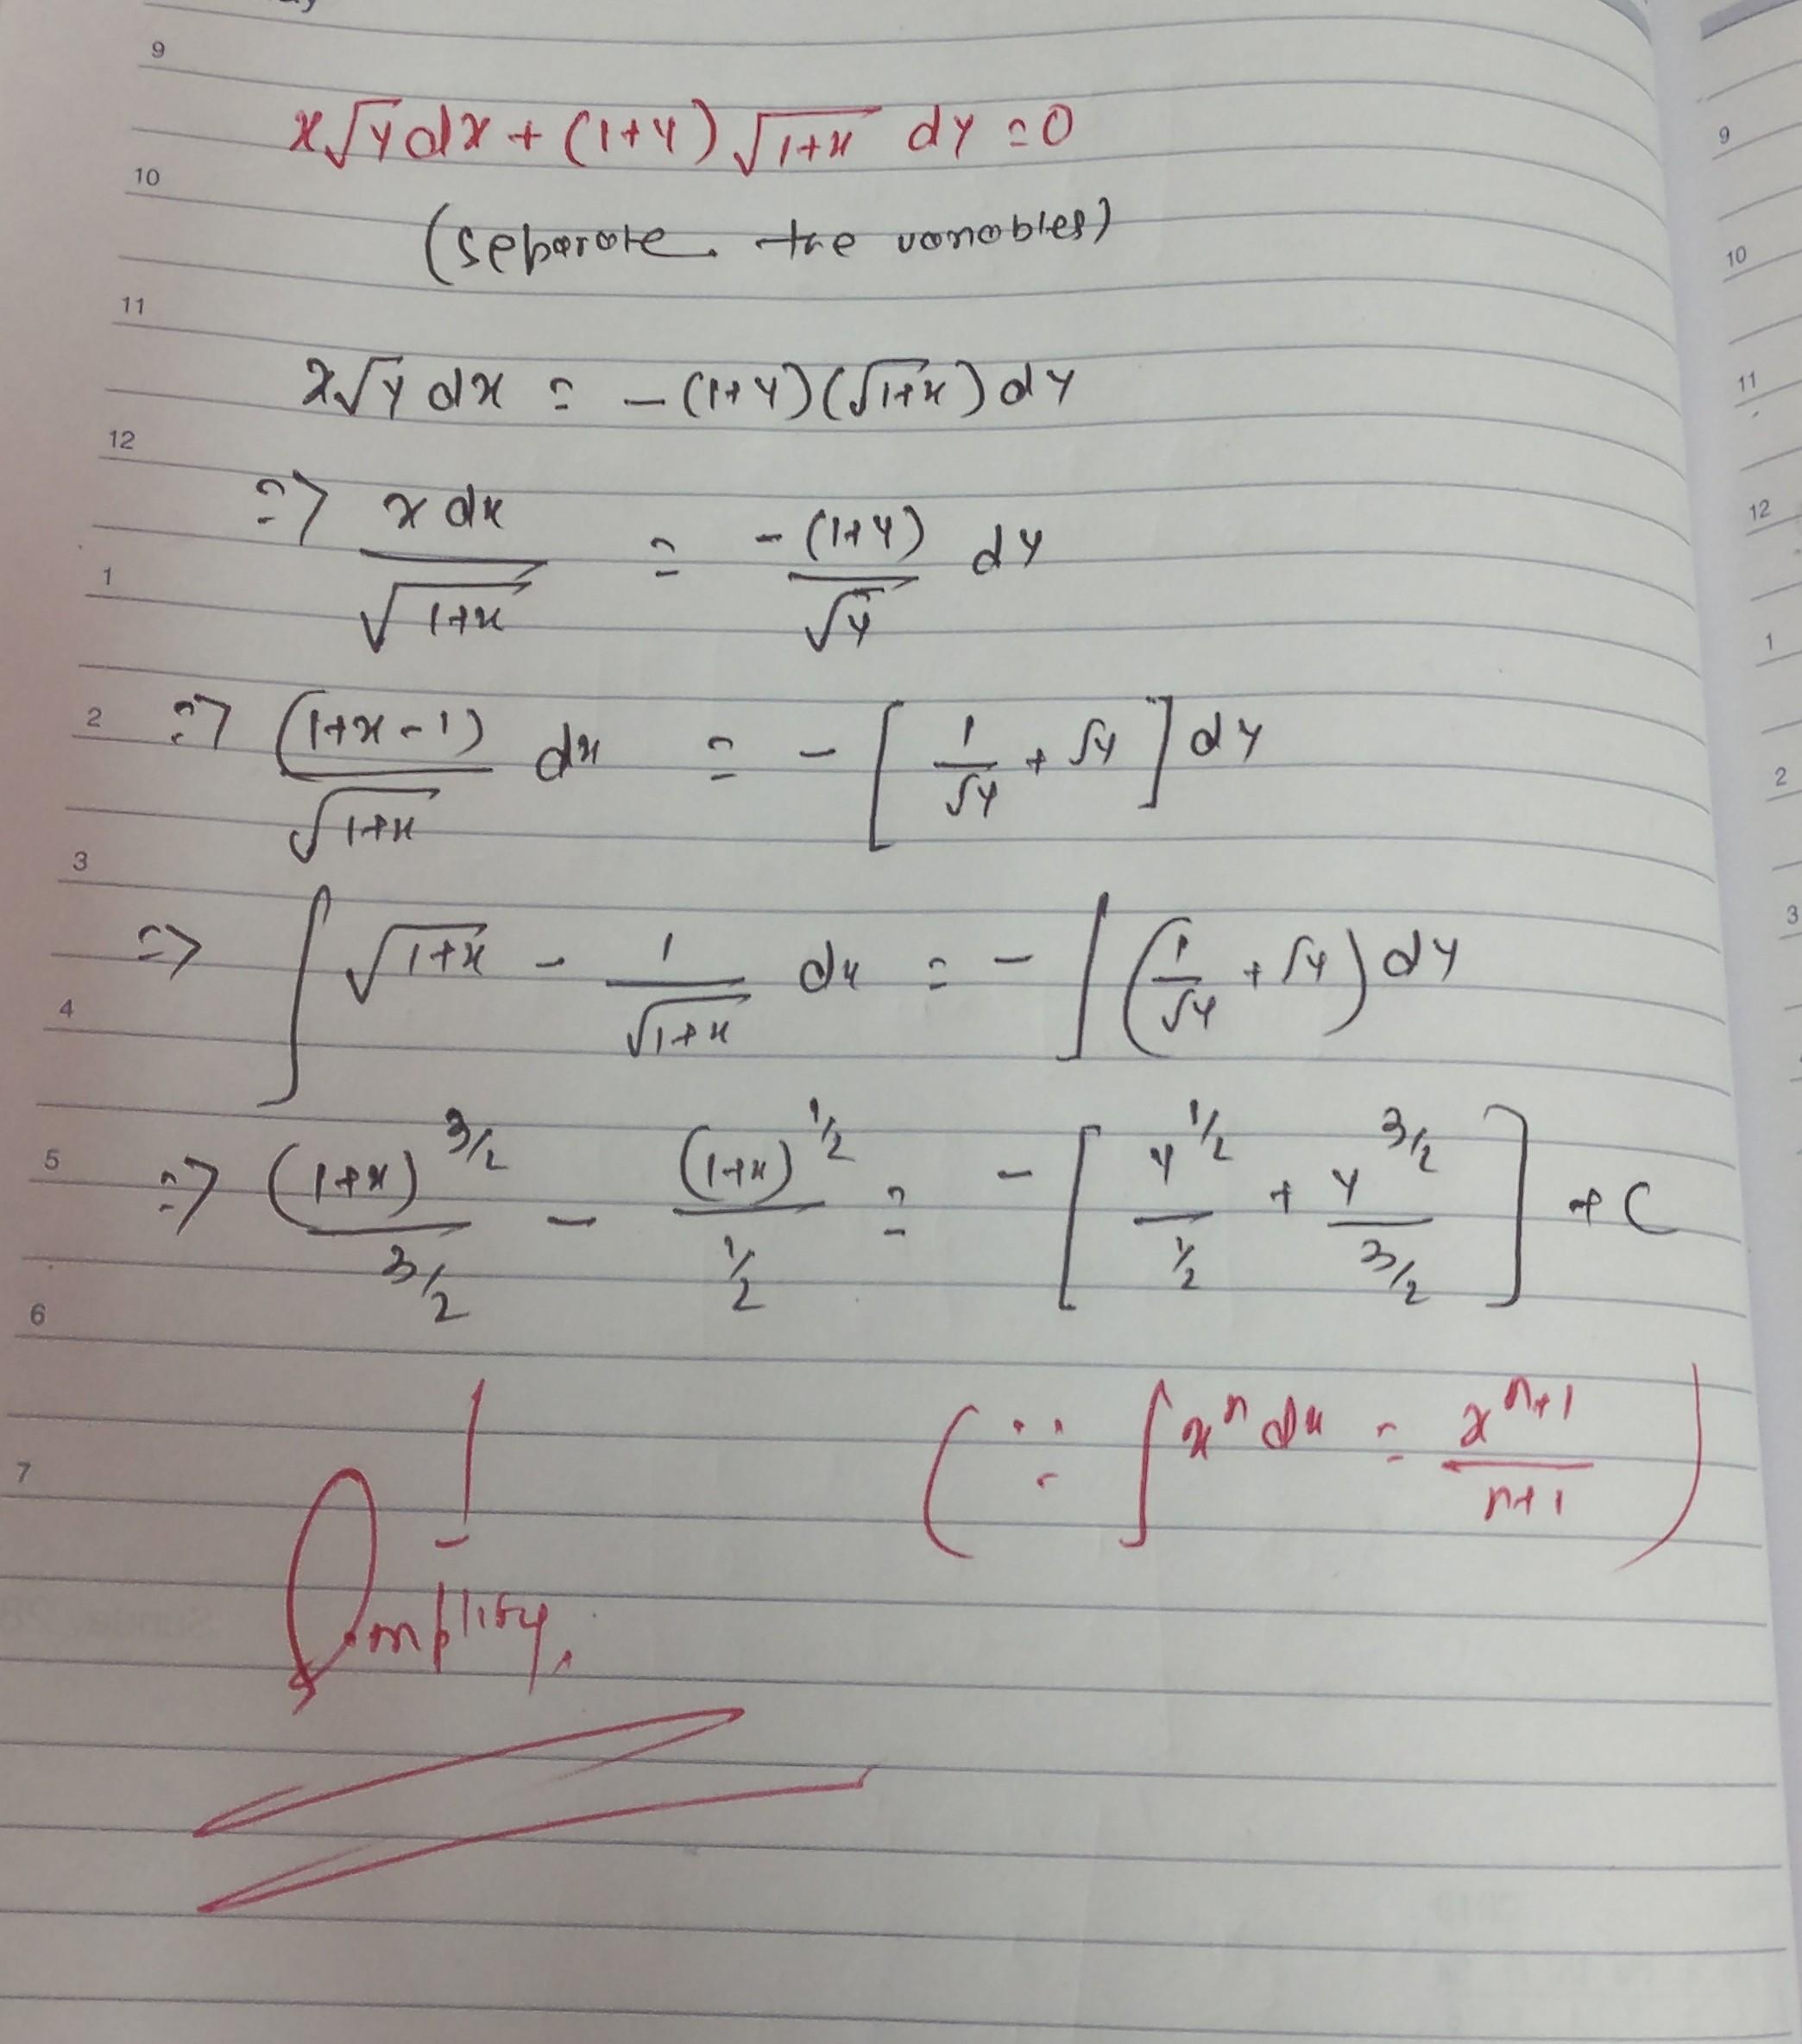 9
x√y dx + (1+y) √(1+x) dy = 0
10
(separate the variables)
11
x√y dx = -(1+y)(√(1+x)) dy
12
=> x dx / √(1+x) = -(1+y) / √y dy
1
2
=> (1+x-1) / √(1+x) dx = - [1/√y + √y] dy
3
=> ∫ √(1+x) - 1/√(1+x) dx = - ∫ (1/√y + √y) dy
4
5
=> (1+x)^3/2 / 3/2 - (1+x)^1/2 / 1/2 = - [y^1/2 / 1/2 + y^3/2 / 3/2] + C
6
(∵ ∫ x^n dx = x^n+1 / n+1)
7
Simplify.
9
10
11
12
1
2
3